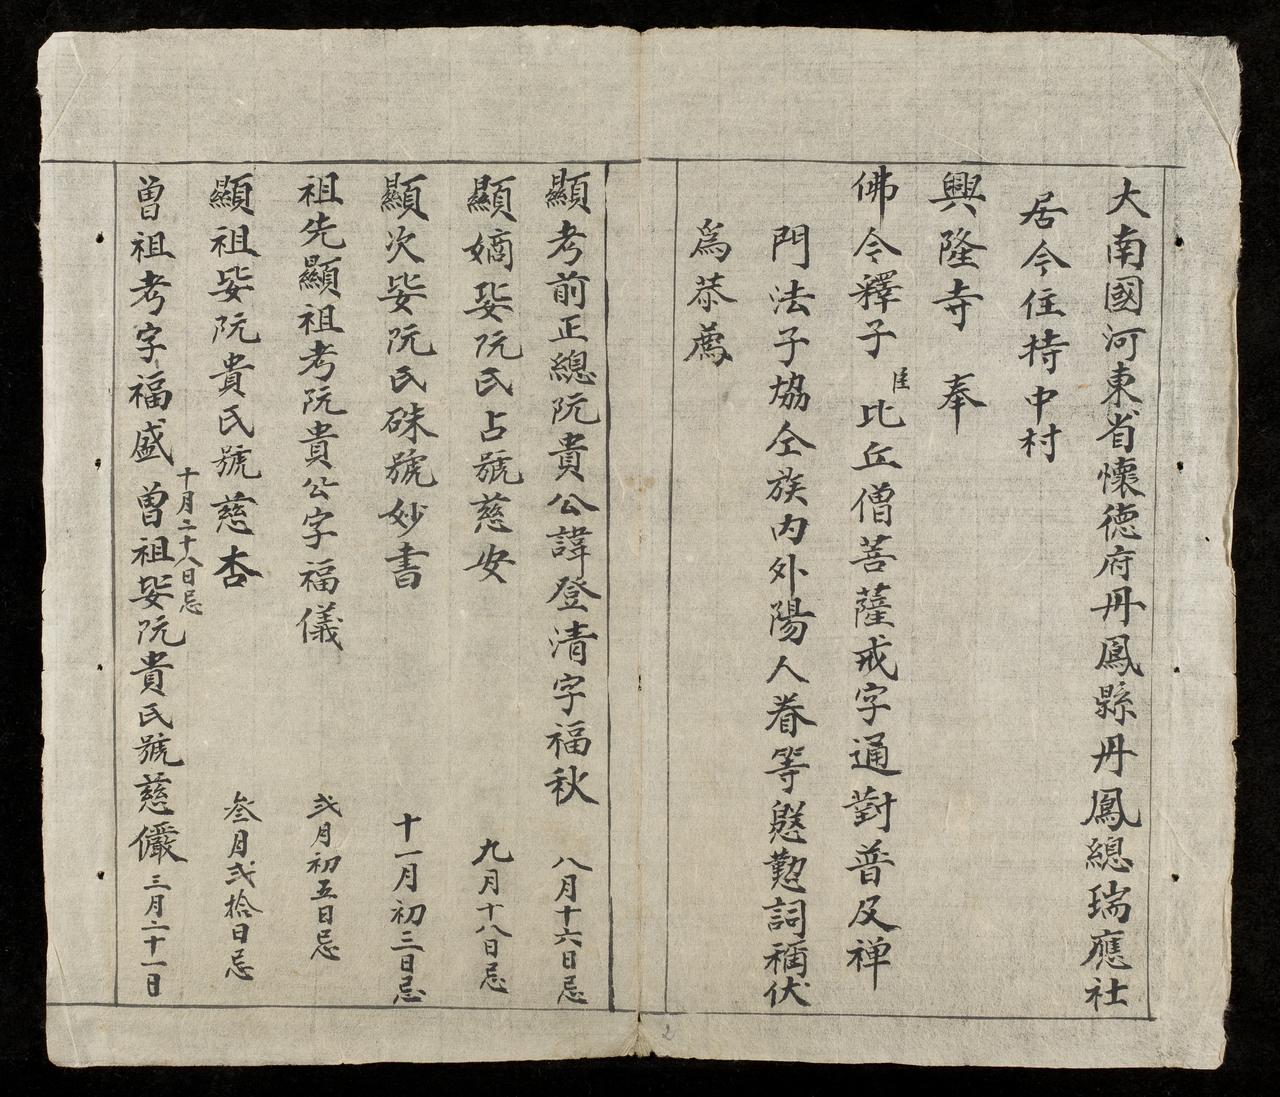 大南國河東省懷德府丹鳳縣丹鳳總瑞應社
居今住持中村
興隆寺 奉
佛令釋子臣比丘僧菩薩戒字通對普及禅
門法子協仝族内外陽人眷等慇懃詞稱伏
爲恭薦
顯考前正總阮貴公諱登清字福秋 八月十六日忌
顯嫡妣阮氏占號慈安 九月十八日忌
顯次妣阮氏硃號妙書 十一月初三日忌
祖先顯祖考阮貴公字福儀 弍月初五日忌
顯祖妣阮貴氏號慈杏 叁月弍拾日忌
曾祖考字福盛 十月二十八日忌 曾祖妣阮貴氏號慈儼 三月二十一日
2